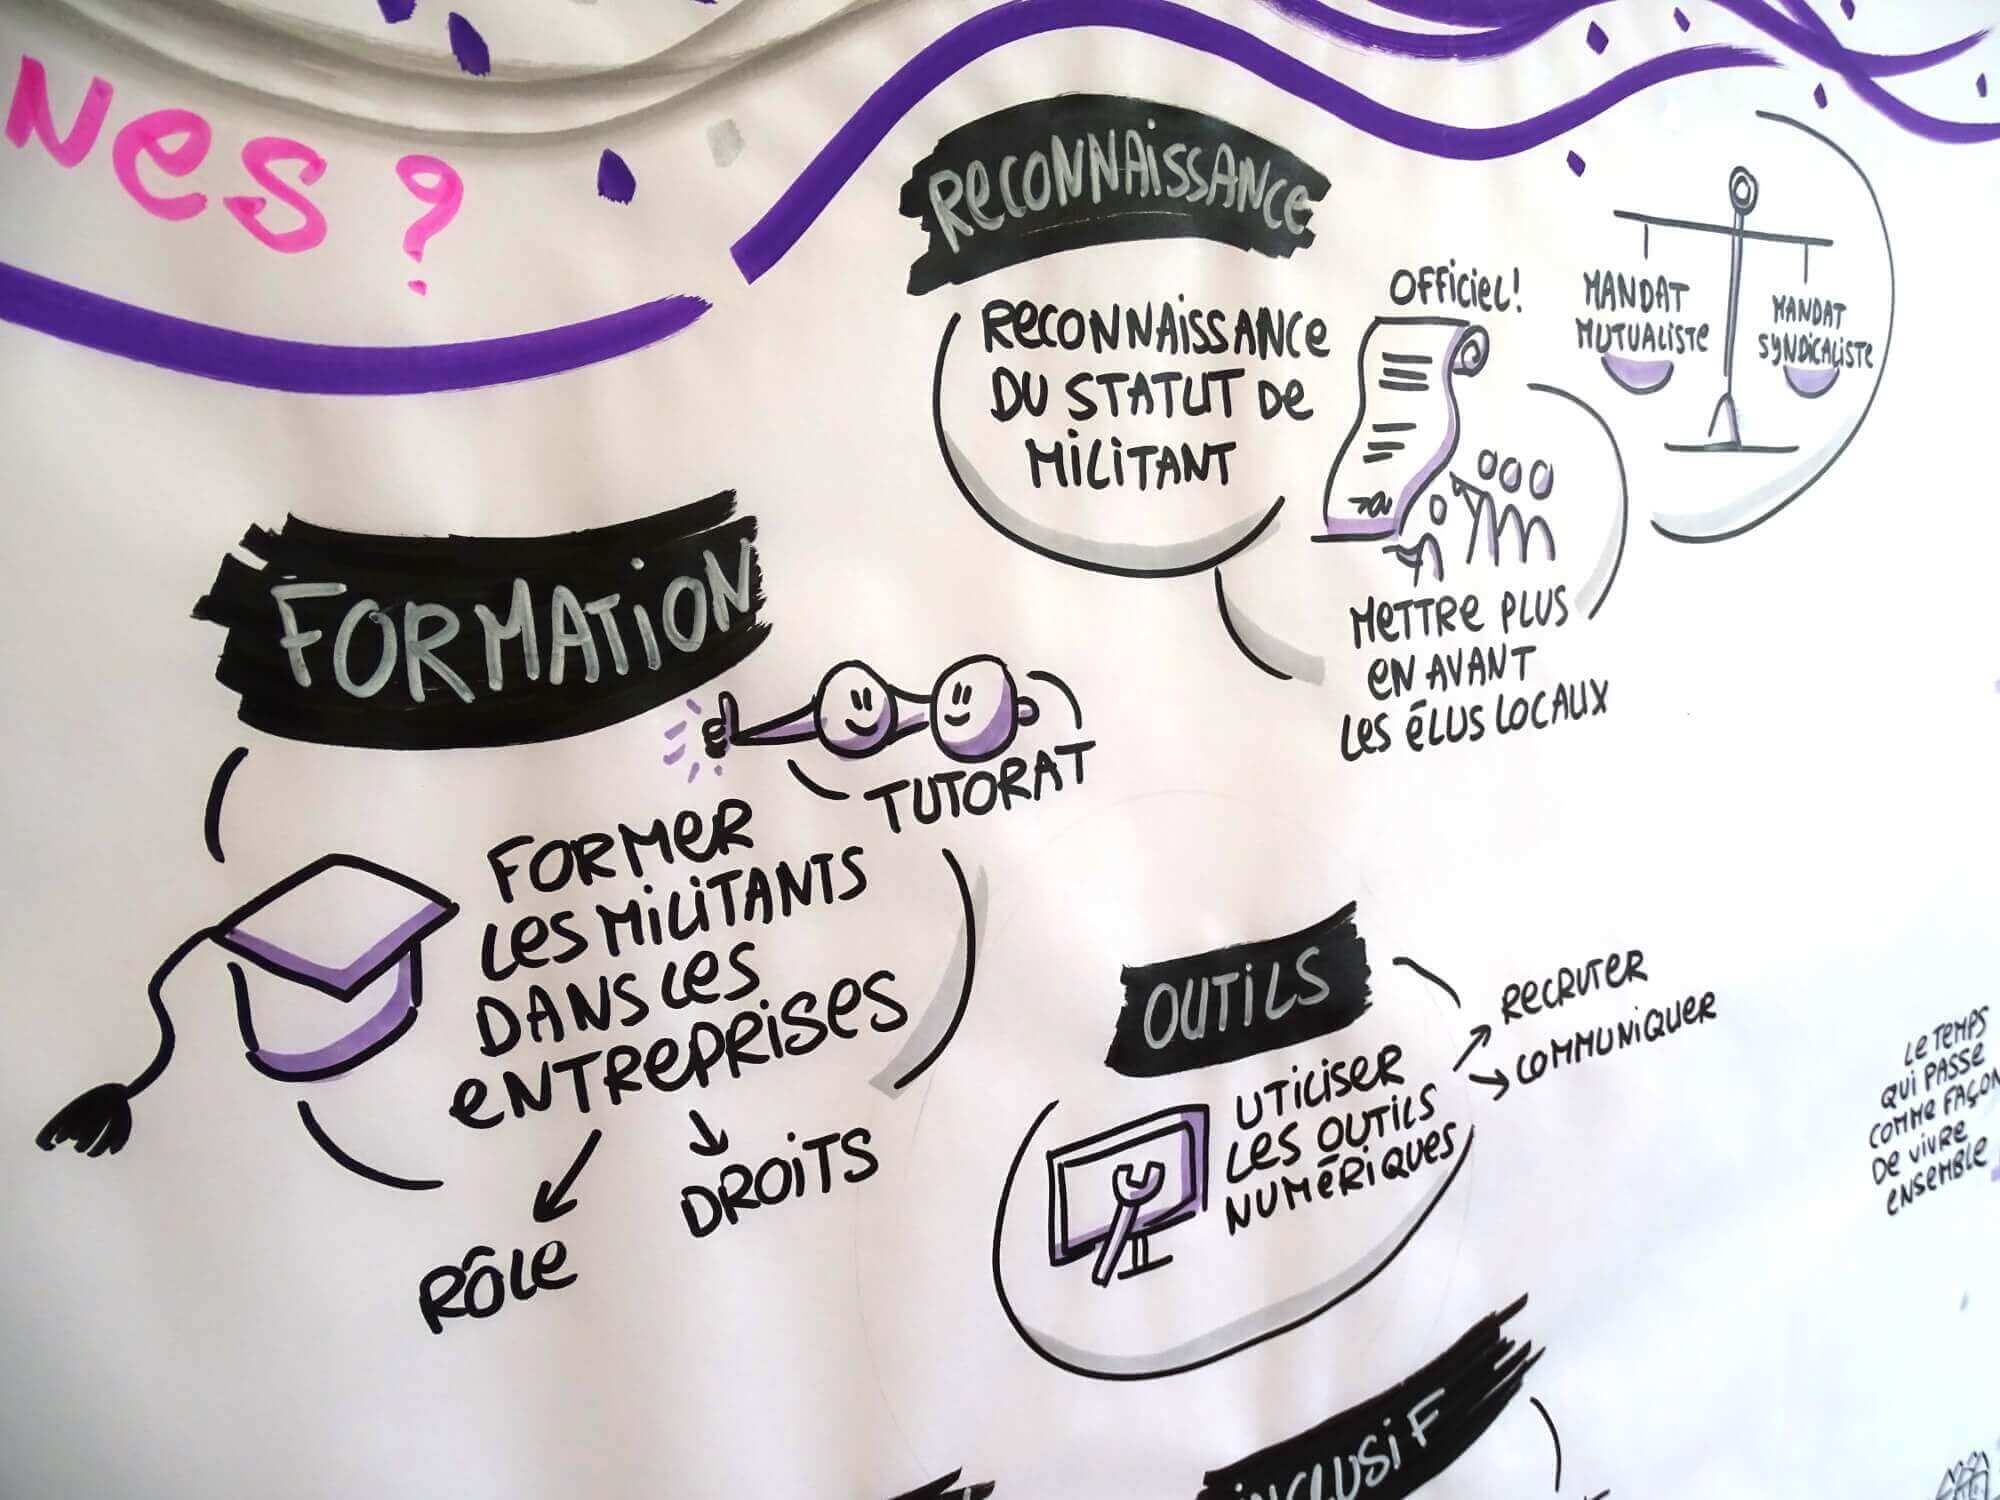 NES ?
RECONNAISSANCE
RECONNAISSANCE
DU STATUT DE
MILITANT
OFFICIEL!
MANDAT
MUTUALISTE
MANDAT
SYNDICALISTE
METTRE PLUS
EN AVANT
LES ÉLUS LOCAUX
FORMATION
TUTORAT
FORMER
LES MILITANTS
DANS LES
ENTREPRISES
RÔLE
DROITS
OUTILS
UTILISER
LES OUTILS
NUMÉRIQUES
RECRUTER
COMMUNIQUER
LE TEMPS
QUI PASSE
COMME FAÇON
DE VIVRE
ENSEMBLE
INCLUSIF